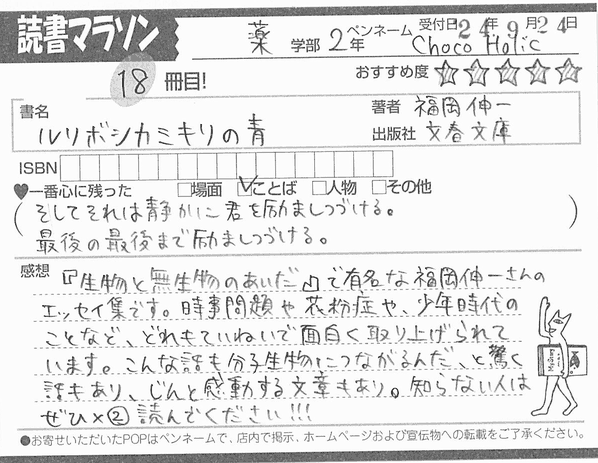 読書マラソン
薬 学部 2年
ペンネーム Choco Holic
受付日 24年 9月 24日
18 冊目!
おすすめ度 ☆☆☆☆☆
書名 ルリボシカミキリの青
著者 福岡伸一
出版社 文春文庫
ISBN
♥一番心に残った □場面 ☑ことば □人物 □その他
(そしてそれは静かに君を励ましつづける。
最後の最後まで励ましつづける。)
感想
『生物と無生物のあいだ』で有名な福岡伸一さんの
エッセイ集です。時事問題や花粉症や、少年時代の
ことなど、どれもていねいで面白く取り上げられて
います。こんな話も分子生物につながるんだ、と驚く
話もあり、じんと感動する文章もあり。知らない人は
ぜひ×② 読んでください!!!
●お寄せいただいたPOPはペンネームで、店内で掲示、ホームページおよび宣伝物への転載をご了承ください。